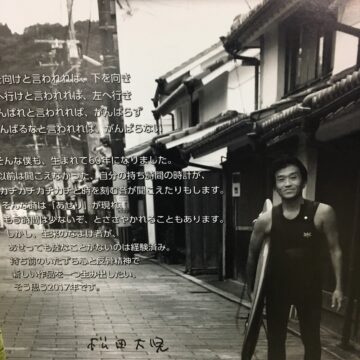 を向けと言われれば、下を向き
へ行けと言われれば、左へ行き
んばれと言われれば、がんばらず
んばるなと言われれば、がんばらない
そんな僕も、生まれて60年になりました。
以前は聞こえなかった、自分の持ち時間の時計が、
カチカチカチカチと時を刻む音が聞こえたりもします。
そんな時は「あせり」が現れ、
もう時間は少ないぞ、とささやかれることもあります。
しかし、生来のなまけ者が、
あせっても焦ることがないのは経験済み。
持ち前のいたずら心と反骨精神で
新しい作品を一つ生み出したい。
そう思う2017年です。
松田大児